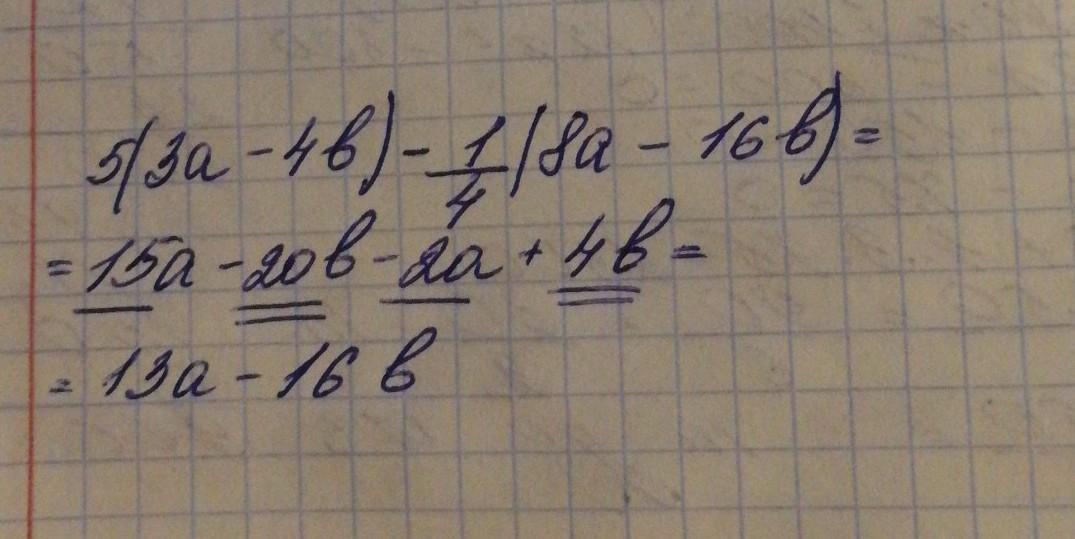 5(3a - 4b) - 1/4 (8a - 16b) =
= 15a - 20b - 2a + 4b =
= 13a - 16b